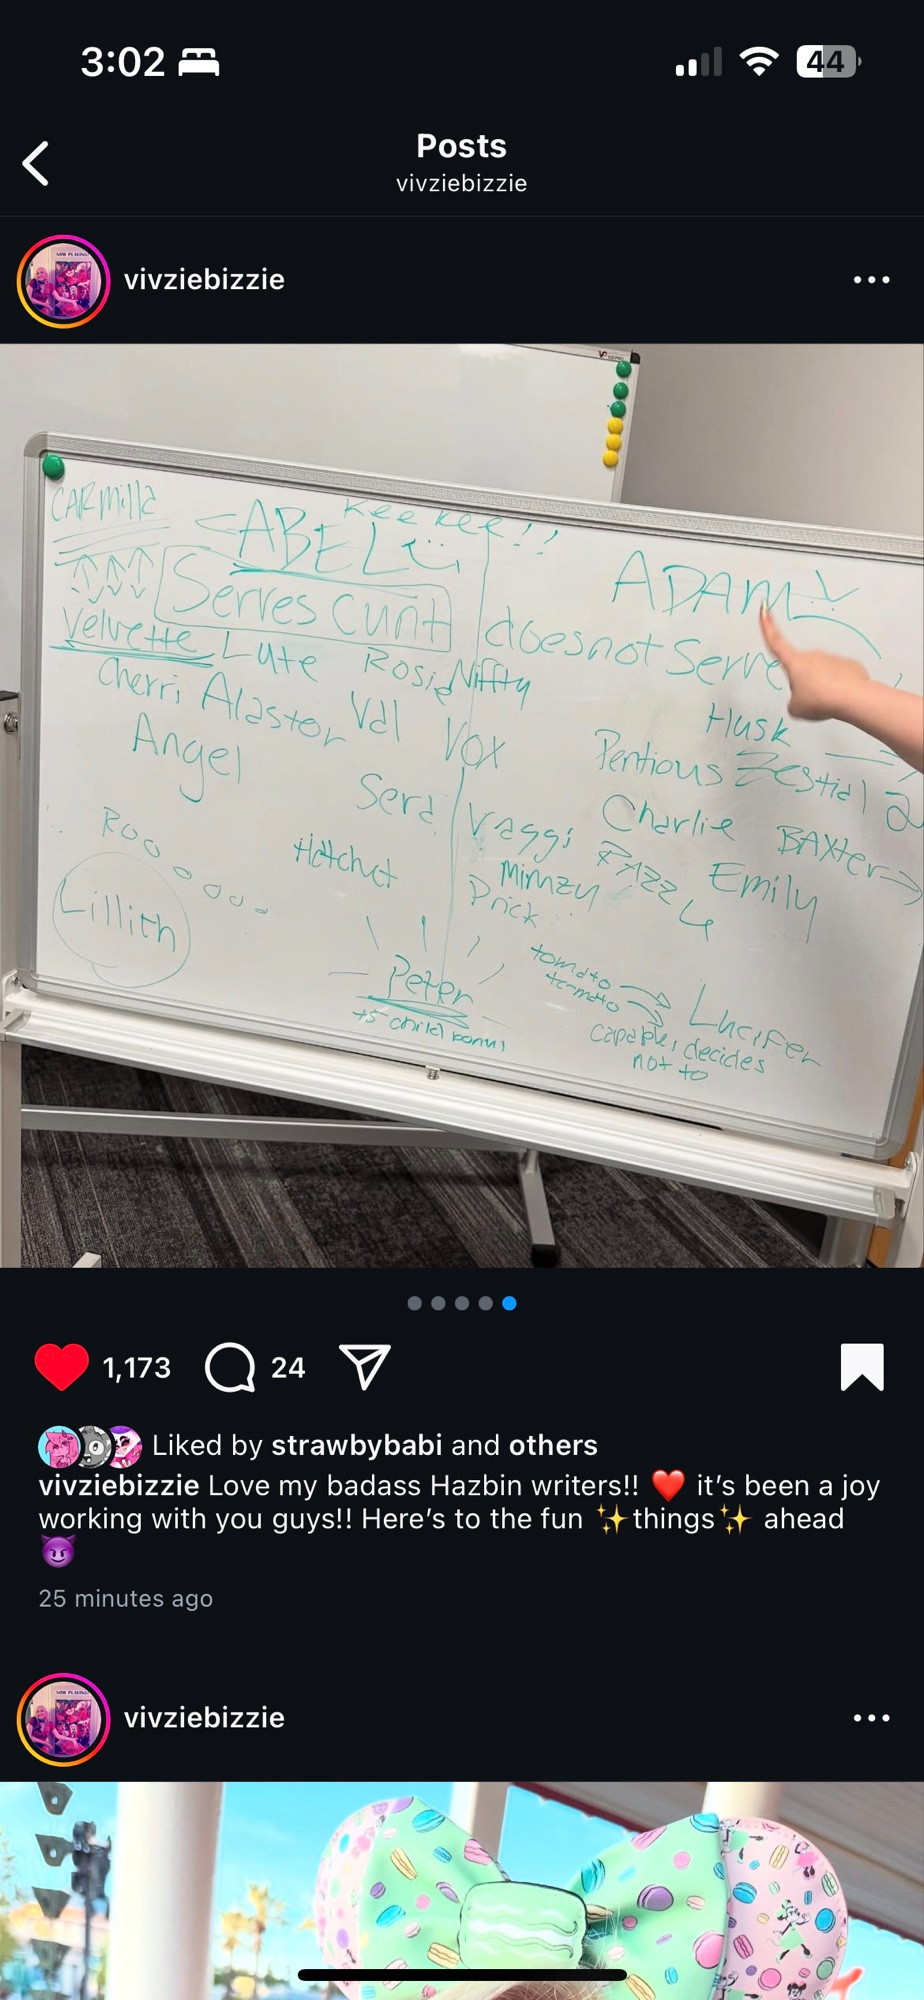 3:02
44
Posts
vivziebizzie
vivziebizzie
CARMilla
Kee Kee!!
<ABEL
ADAM
Serves cunt
does not Serve
Velvette Lute Rosie Niffty
Husk
Cherri Alastor Val Vox
Pentious Zestial
Angel
Sera
Vaggi Charlie BAXter
Roo
Hatchet
Mimzy RAZZLe Emily
Prick
Lillith
Peter
+5 child bonus
tomato
tomato
Lucifer
capable, decides
not to
1,173
24
Liked by strawbybabi and others
vivziebizzie Love my badass Hazbin writers!! ❤️ it's been a joy
working with you guys!! Here's to the fun ✨things✨ ahead
😈
25 minutes ago
vivziebizzie